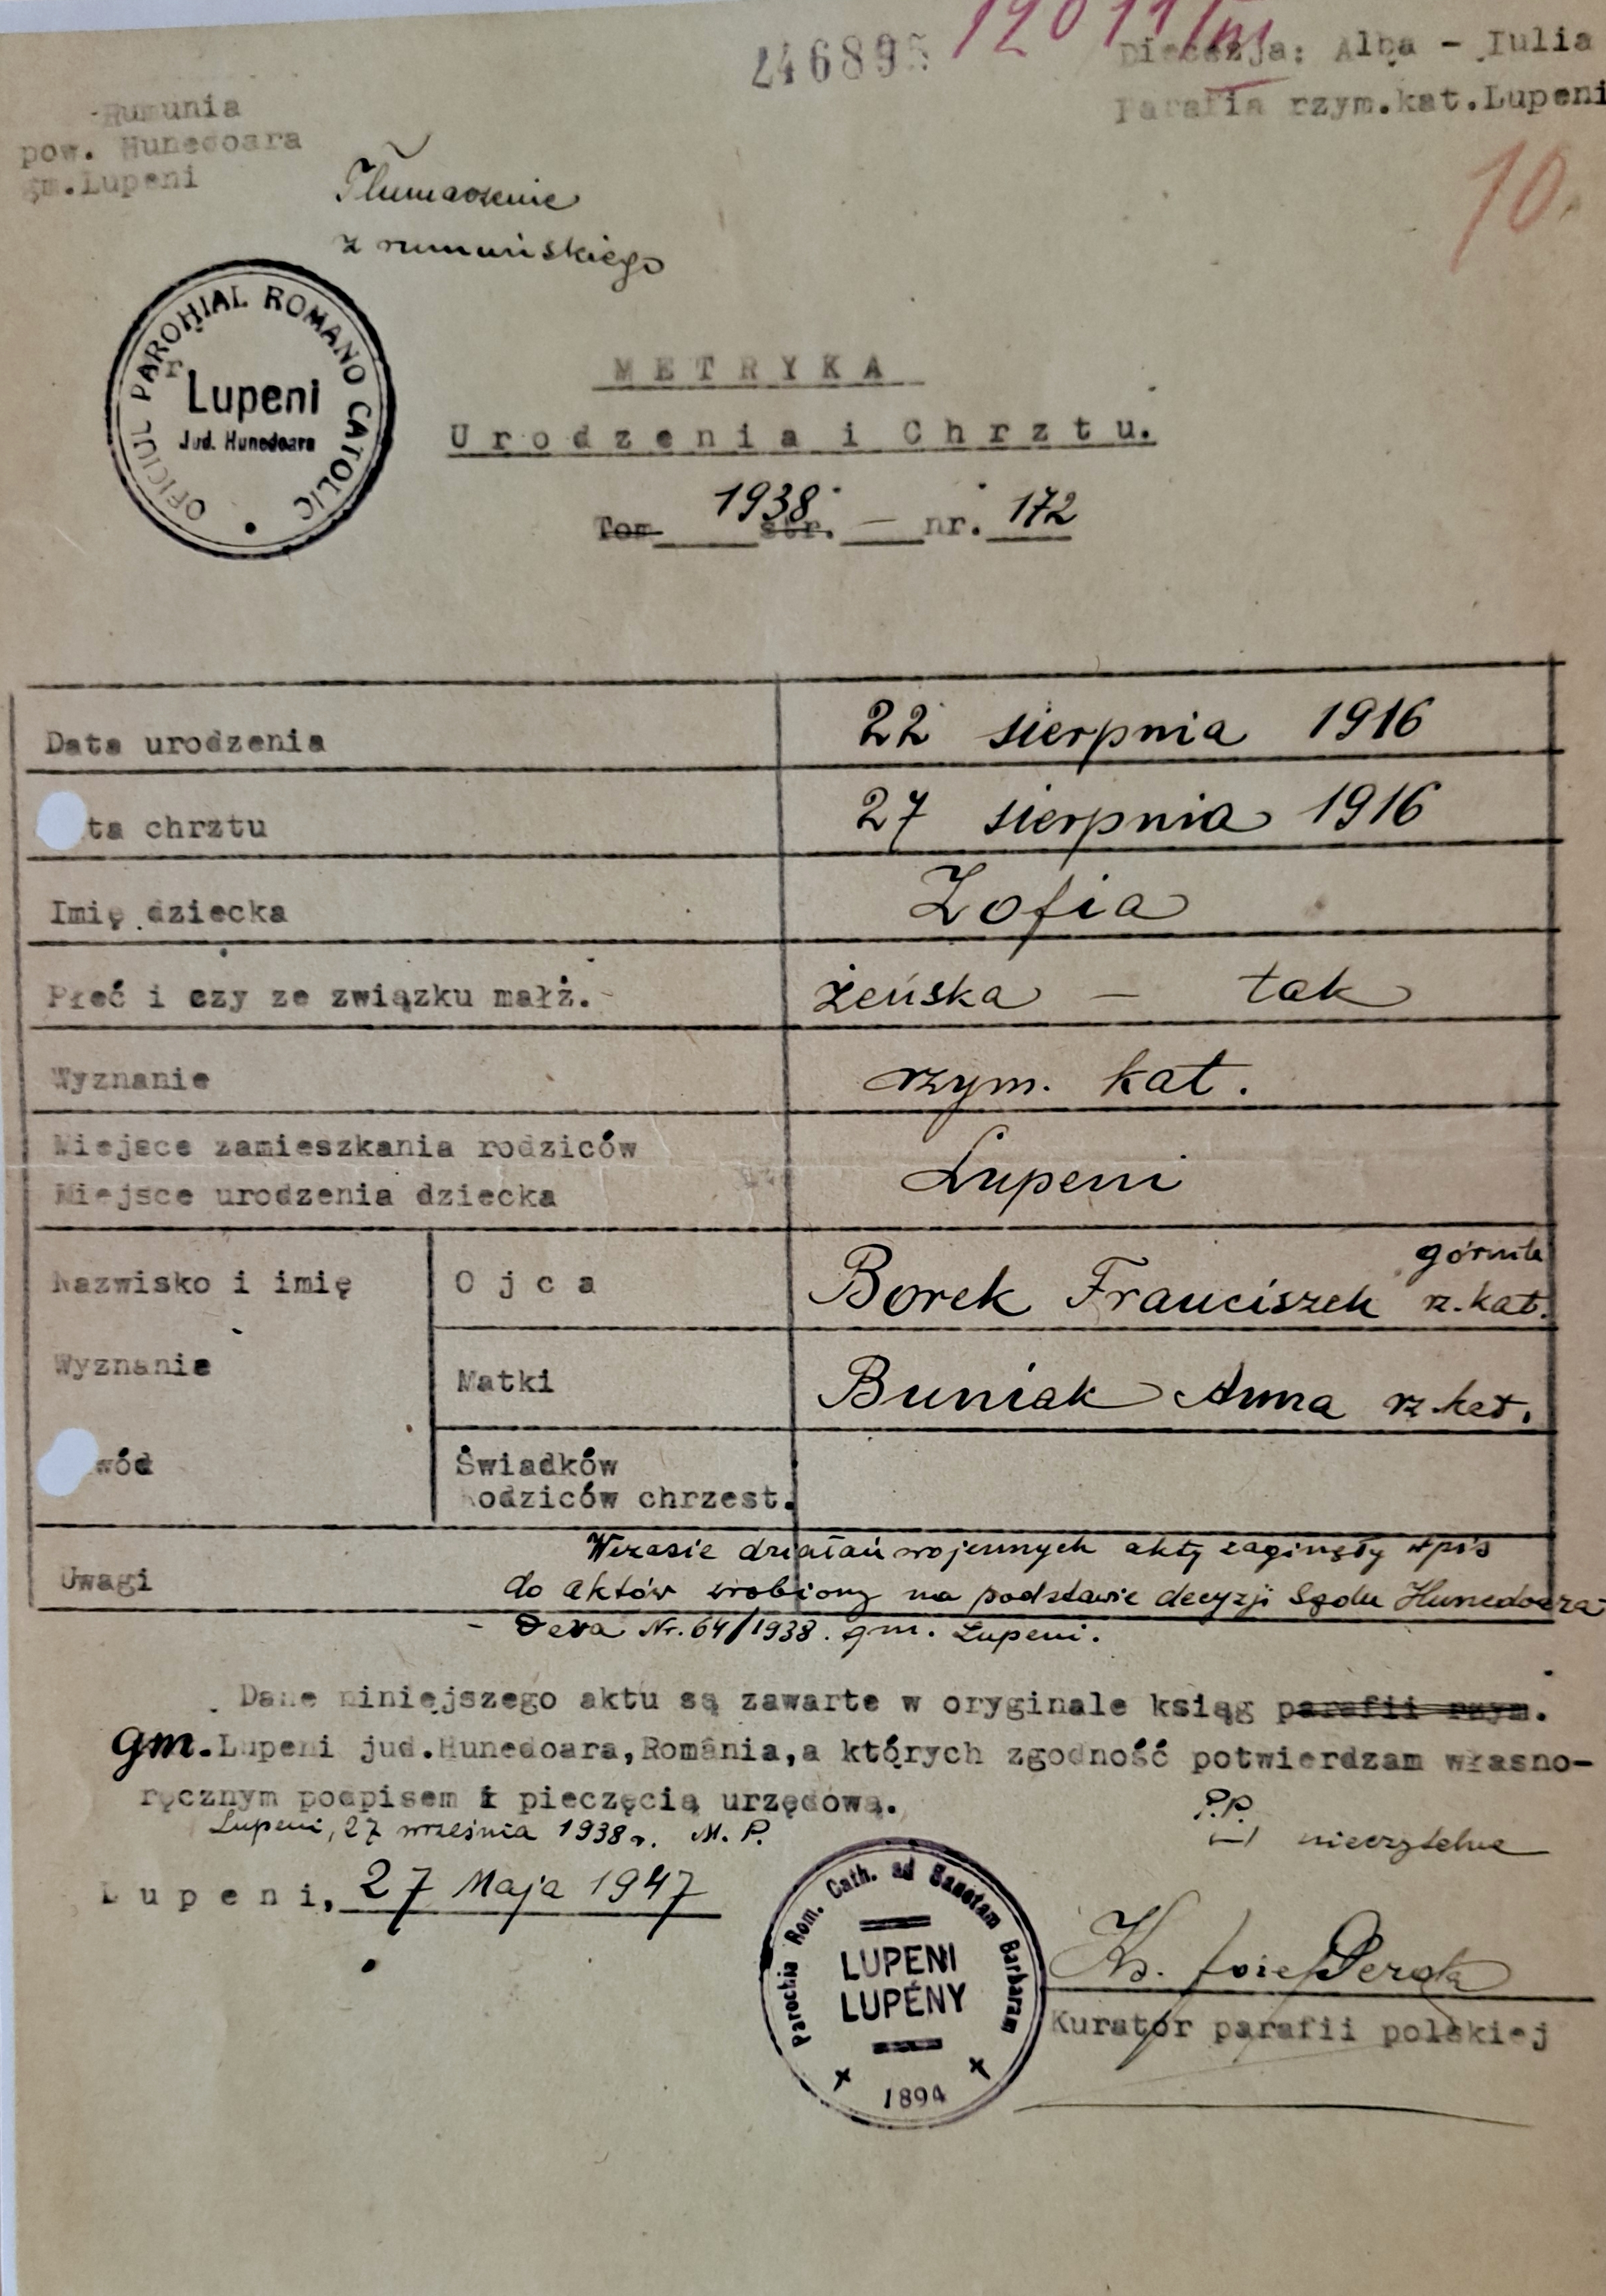 246895
12011/III
Diecezja: Alba - Iulia
Parafia rzym.kat.Lupeni
Rumunia
pow. Hunedoara
gm.Lupeni
10.
Tłumaczenie
z rumuńskiego
OFICIUL PAROHIAL ROMANO CATOLIC
Lupeni
Jud. Hunedoara
METRYKA
Urodzenia i Chrztu.
Tom 1938 str. — nr. 172
Data urodzenia 22 sierpnia 1916
ta chrztu 27 sierpnia 1916
Imię dziecka Zofia
Płeć i czy ze związku małż. żeńska — tak
Wyznanie rzym. kat.
Miejsce zamieszkania rodziców
Miejsce urodzenia dziecka Lupeni
Nazwisko i imię Ojca Borek Franciszek górnik rz.kat.
Wyznanie Matki Buniak Anna rz.kat.
wód Świadków
Rodziców chrzest.
Uwagi Wczasie działań wojennych akty zaginęły wpis
do aktów zrobiony na podstawie decyzji Sądu Hunedoara
- Deva Nr. 64/1938. gm. Lupeni.
Dane niniejszego aktu są zawarte w oryginale ksiąg parafii rzym.
gm. Lupeni jud.Hunedoara,România,a których zgodność potwierdzam własno-
ręcznym podpisem i pieczęcią urzędową.
Lupeni, 27 września 1938 r. M. P.
P.P.
(—) nieczytelne
Lupeni, 27 Maja 1947
Parochia Rom. Cath. ad Sanctam Barbaram
LUPENI
LUPÉNY
1894
Ks. Józef
Kurator parafii polskiej